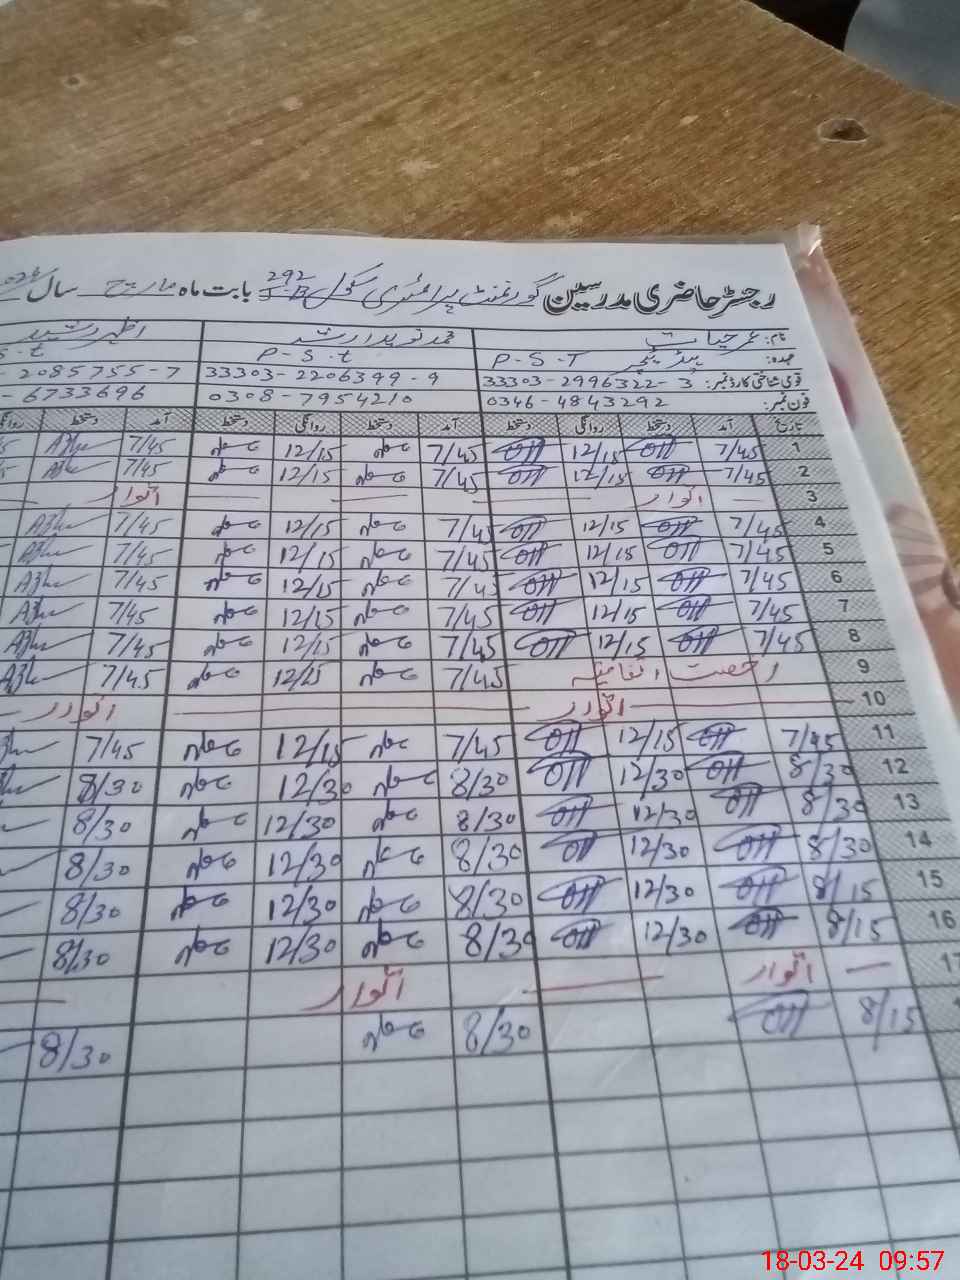 رجسٹر حاضری مدرسین گورنمنٹ پرائمری سکول 292 بابت ماہ مارچ سال
نام: عمر حیات محمد نوید ارشد اظہر رشید
عہدہ: ہیڈ ٹیچر P-S-T P-S-t S-t
قومی شناختی کارڈ نمبر: 33303-2996322-3 33303-2206399-9 2085755-7
فون نمبر: 0346-4843292 0308-7954210 6733696
تاریخ آمد دستخط روانگی دستخط آمد دستخط روانگی دستخط آمد دستخط روانگی
1 7/45 12/15 7/45 12/15 7/45
2 7/45 12/15 7/45 12/15 7/45
3 اتوار اتوار
4 7/45 12/15 7/45 12/15 7/45
5 7/45 12/15 7/45 12/15 7/45
6 7/45 12/15 7/45 12/15 7/45
7 7/45 12/15 7/45 12/15 7/45
8 7/45 12/15 7/45 12/15 7/45
9 رخصت اتفاقیہ 7/45 12/15 7/45
10 اتوار اتوار
11 7/45 12/15 7/45 12/15 7/45
12 8/30 12/30 8/30 12/30 8/30
13 8/30 12/30 8/30 12/30 8/30
14 8/30 12/30 8/30 12/30 8/30
15 8/15 12/30 8/30 12/30 8/30
16 8/15 12/30 8/30 12/30 8/30
17 اتوار اتوار
8/15 8/30 8/30
18-03-24 09:57